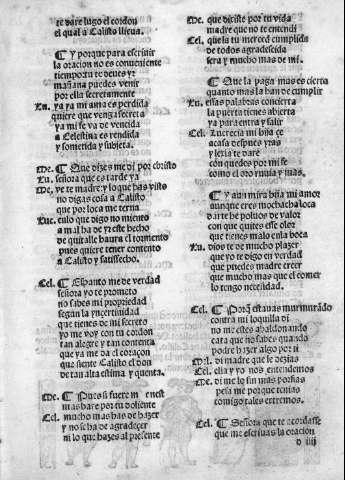 te dare luego el cordon
el qual a Calisto llieua.
¶ Y porque para escriuir
la oracion no es conueniente
tiempo tu te deues yr
mañana puedes venir
por ella secretamente
Lu. ya ya mi ama es perdida
quiere que venga secreta
ya mi fe va de vencida
a Celestina es rendida
y sometida y subjeta.
Me. ¶ Que dizes me di por christo
Lu. señora que es tarde ya
Me. ye te madre: y lo que has visto
no digas cosa a Calisto
que por loca me terna
Luc. culo que digo no miento
a mal ha de yr este hecho
de qui talle haura el tormento
pues quiere tener contento
a Calisto y satisfecho.
Cel. ¶ Espanto me de verdad
señora yo te prometo
no sabes mi propiedad
segun la yncertiuidad
que tienes de mi secreto
yo me voy con tu cordon
tan alegre y tan contenta
que ya me da el coraçon
que siente Calisto el don
de tan alta estima y quenta.
Me. ¶ Pues si fuere menest
mas hare por tu doliente
Cel. mucho mas has de hazer
y no se ha de agradecer
ni lo que hazes al presente
Me. que dixiste por tu vida
madre que no te entendi
Cel. que la tu merced cumplida
de todos agradescida
sera y mucho mas de mi.
¶ Que la paga mas es cierta
quanto mas la han de cumplir
Lu. essas palabras concierta
la puerta tienes abierta
ya para entra y salir
Cel. Lucrecia mi hija ce
a casa despues yras
y lexia te dare
con que des por mi fe
como el oro ruuia y mas.
¶ y aun mira hija mi amor
aunque eres mochacha loca
darte he poluos de valor
con que quites esse olor
que tienes malo en la boca
Lu. dios te de mucho plazer
que yo te digo en verdad
que puedes madre creer
que mucho mas que el comer
lo tengo necesidad.
Cel. ¶ Porq̃ estauas murmurãdo
contra mi loquilla di
no me estes abaldonando
cata que no sabes quando
podre hazer algo por ti
Mel. di madre que le dezias
Cel. ella y yo nos entendemos
Me. dimelo sin mas porfias
pesa me porque tenias
comigo tales estremos.
Cel. ¶ Señora que te acordasse
que me escriuas la oracion
d iiij